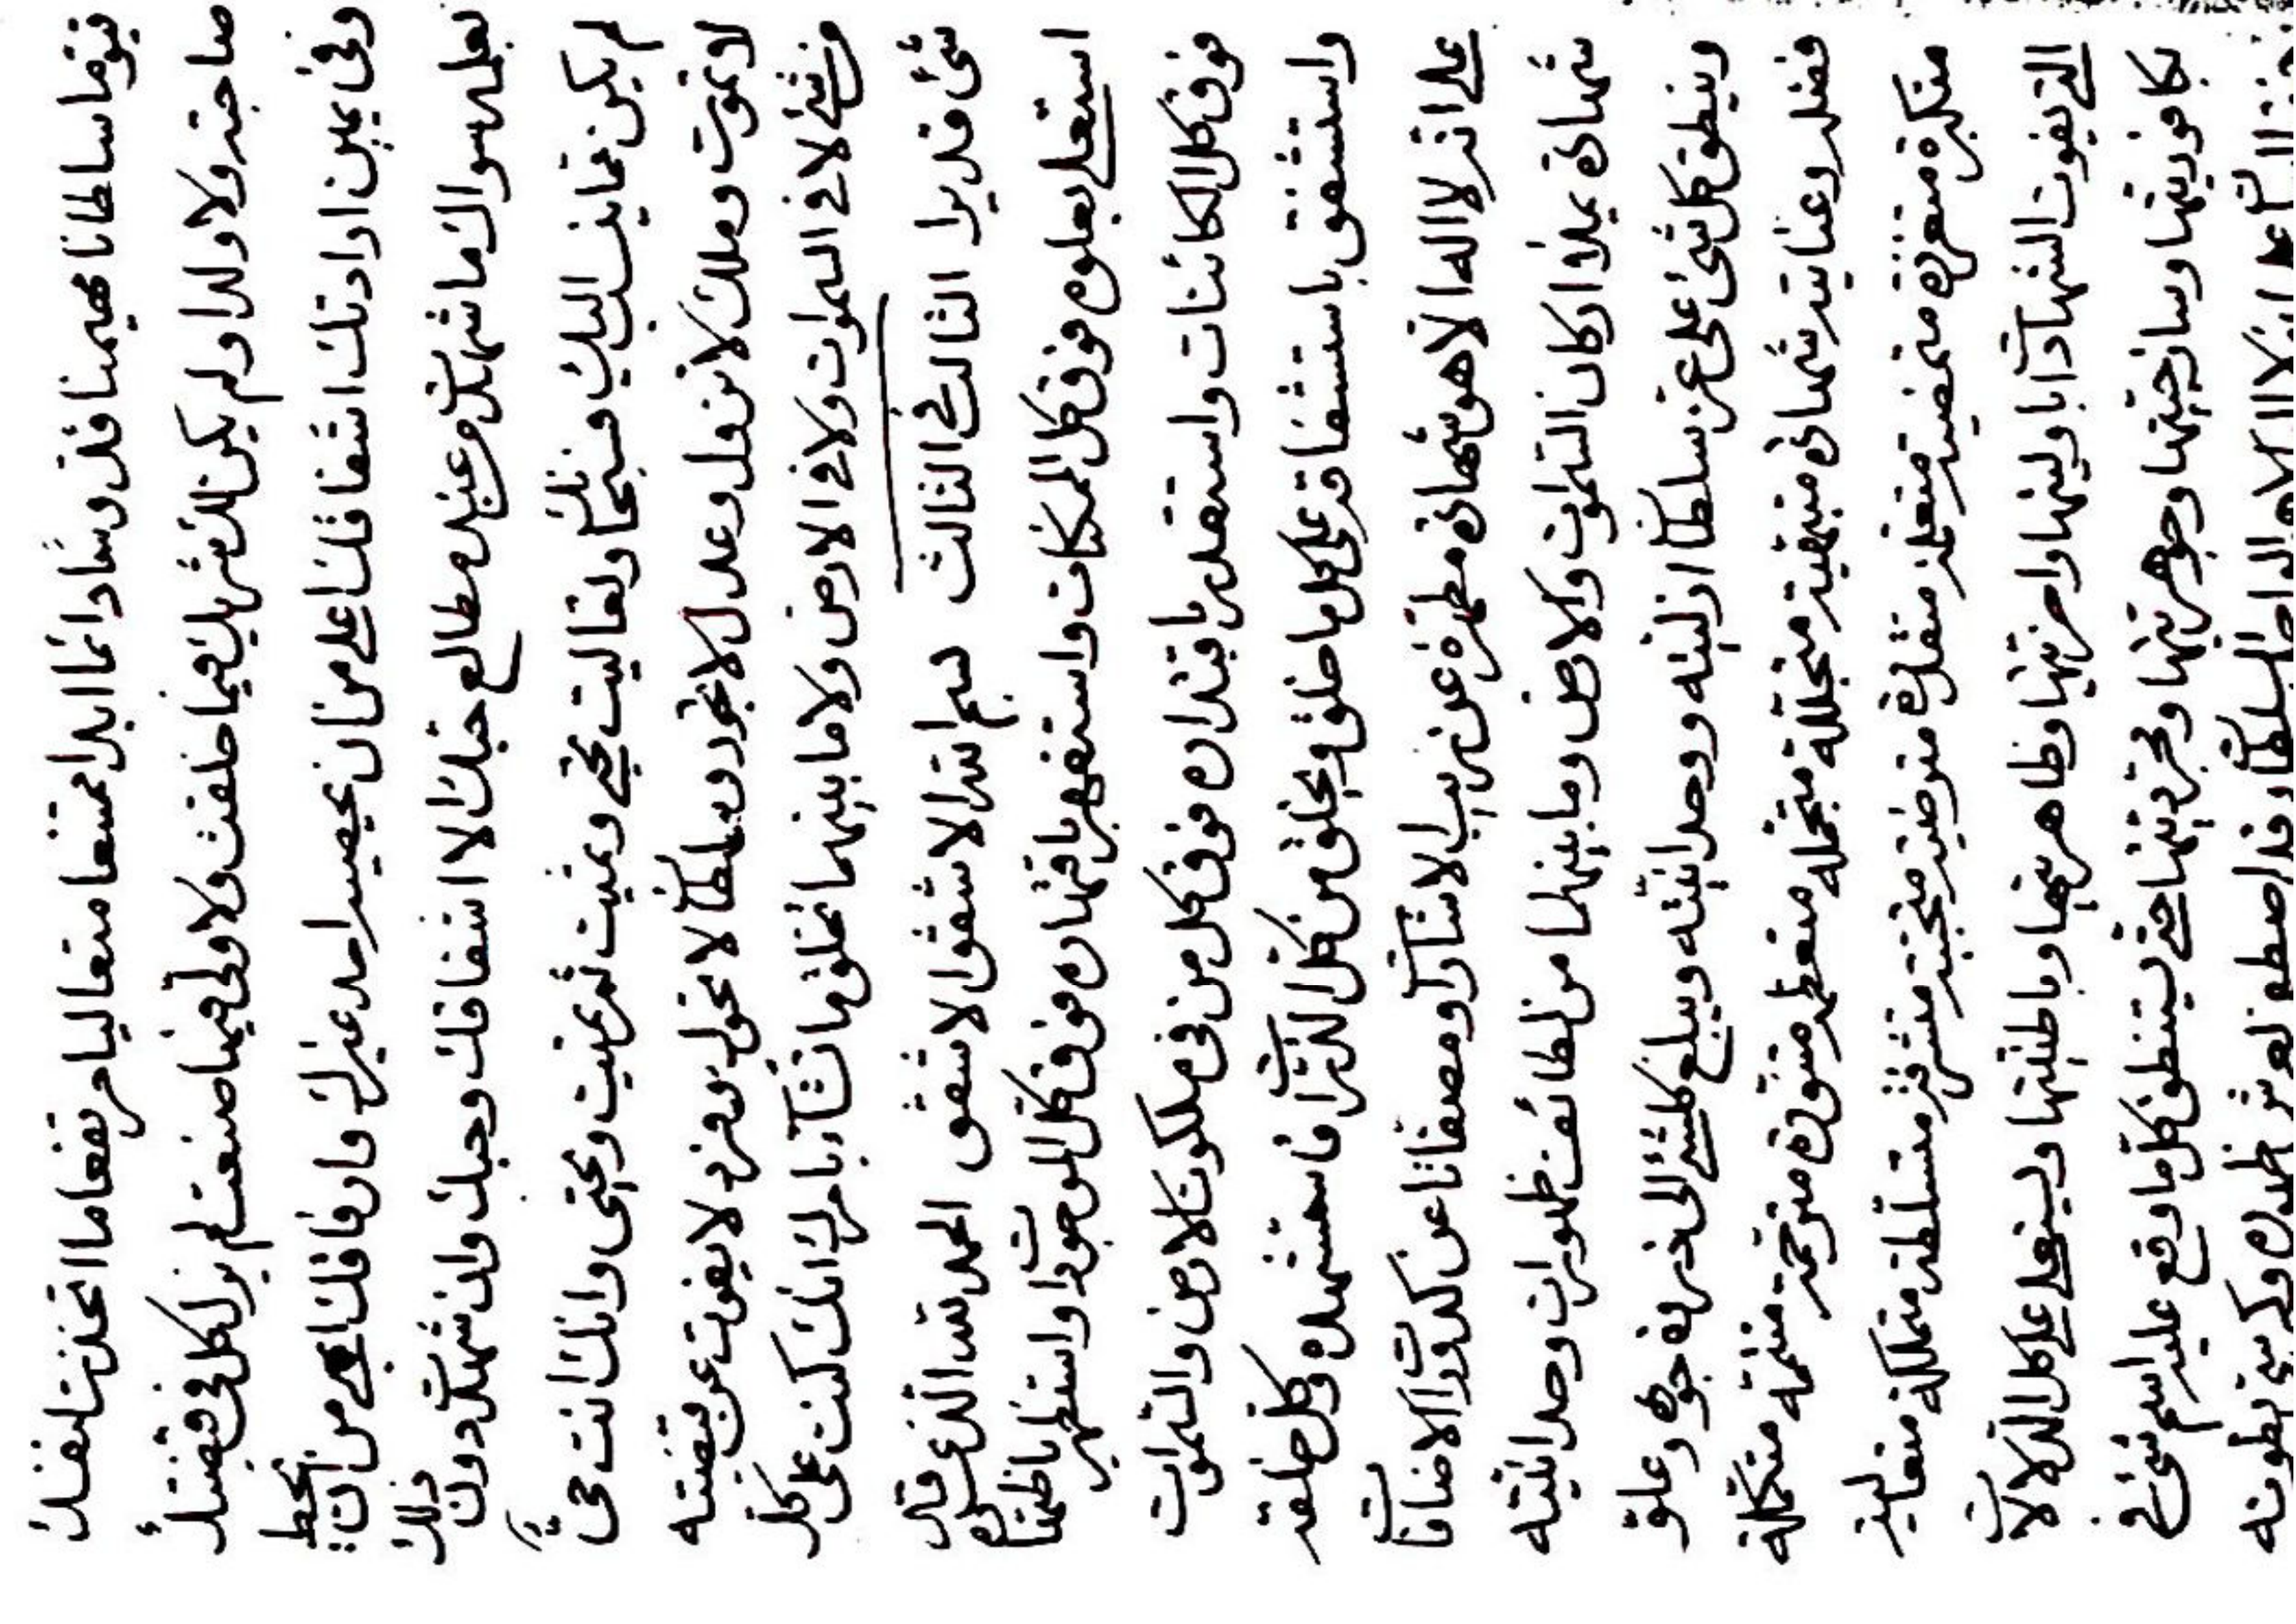 قيوما سلطانا مهيمنا قدوسا دائما ابدا ممتنعا متعاليا مرتفعا ما اتخذت لنفسك
صاحبة ولا ولدا ولم يكن لك شريك فيما خلقت ولا ولي فيما صنعت لم يزل كل في قبضتك
وفي يمين ارادتك اشفاقك اعلى من ان يحصيه احد غيرك وارفاقك من ان يحط
بعلمه سواك ما شهدت من عبد مطالع حبك الا اشفاقك وحبك وان شهدت دون ذلك
لم يكن مما ينسب اليك فسبحانك وتعاليت تحيي وتميت ثم تميت وتحيي وانك انت حي
لا تموت وملك لا تزول وعدل لا تجور وسلطان لا تحول وفرد لا يفوت عن قبضته
من شئ لا في السموات ولا في الارض ولا ما بينهما تخلق ما تشآء بامرك انك كنت على كل
شئ قديرا الثالث في الثالث بسم الله الاشفق الاشفق الحمد لله الذي قد
استعلى بعلوه فوق كل الممكنات واستقهر باقتهاره فوق كل الموجودات واستظهر باظهاره
فوق كل الكائنات واستقدر باقتداره فوق كل من في ملكوت الارض والسموات
واستشفق باستشفاقه على كل ما خلق ويخلق من كل الذرات فاستشهده وكل خلقه
على انه لا اله الا هو شهادة مطهرة عن الاشارات ومصفاتا عن كدورات الاضافات
شهادة يملاء اركان السموات والارض وما بينهما من لطائف ظهورات وحدانيته
وينطق كل شئ على عز سلطان ازليته ووحدانيته ويبلغ كلشئ الى ذروة جوده وعلو
فضله وعنايته شهادة متبهية متجللة متجملة متعظمة متنورة مترحمة متتممة متكملة
متكبرة متعززة متعلمة متقدرة مترضية متحببة متشرفة متسلطة متملكة متعالية
التي يفوت الشهادات باوليتها واخريتها وظاهريتها وباطنيتها ويستعلي على كل الدلالات
بكافوريتها وساذجيتها وجوهريتها ومجرديتها حتى يستنطق كل ما وقع عليه اسم شئ